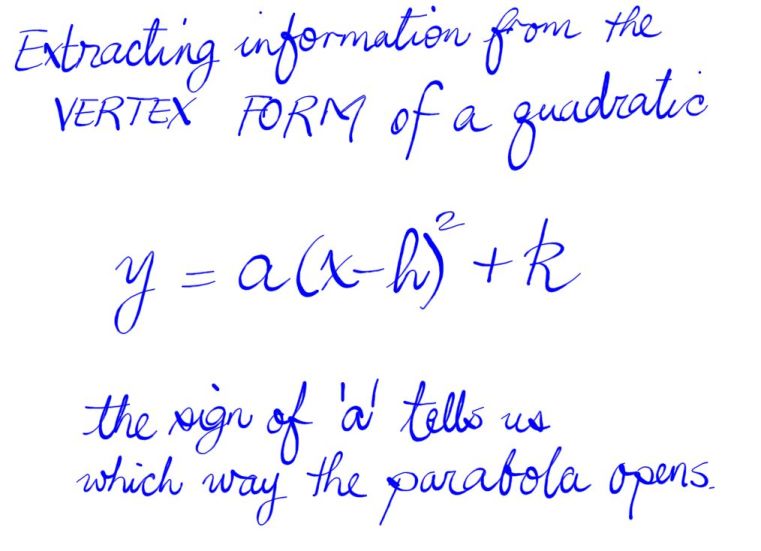 Extracting information from the
VERTEX FORM of a quadratic
y = a(x-h)² + k
the sign of 'a' tells us
which way the parabola opens.